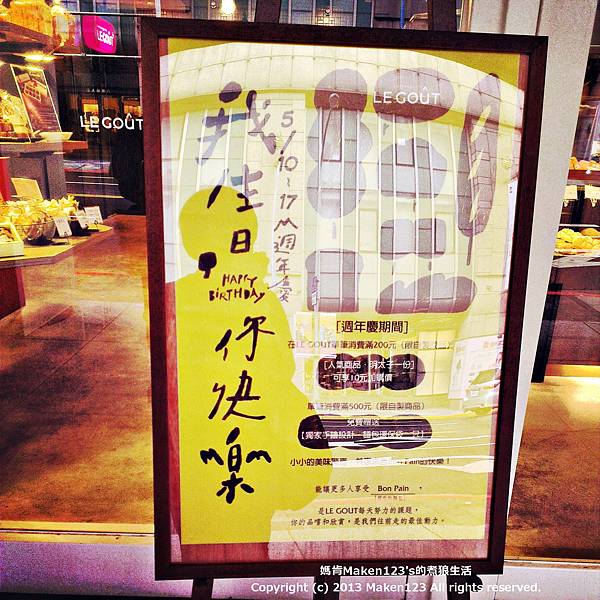 LE GOÛT
LE GOÛT
LE GOÛT
我生日
HAPPY
BIRTHDAY
你快樂
5/10~17
週年慶
[週年慶期間]
在LE GOUT單筆消費滿200元(限自製商品)
[人氣商品-明太子一份]
可享10元加購價
單筆消費滿500元(限自製商品)
免費贈送
小小的美味
的快樂!
能讓更多人享受 Bon Pain ,
是LE GOUT每天努力的課題,
你的品嚐和欣賞,是我們往前走的最佳動力。
媽肯Maken123's的煮狼生活
Copyright (c) 2013 Maken123 All rights reserved.